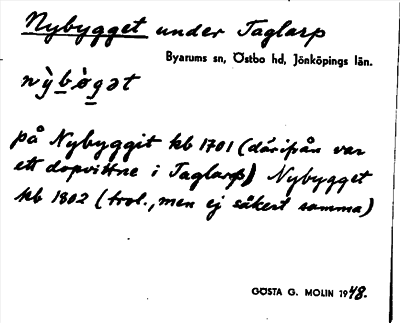 Nybygget under Taglarp
Byarums sn, Östbo hd, Jönköpings län.
nỳbò̱gət
på Nybyggit kb 1701 (därifrån var
ett dopvittne i Taglarp) Nybygget
kb 1802 (trol., men ej säkert samma)
GÖSTA G. MOLIN 1948.